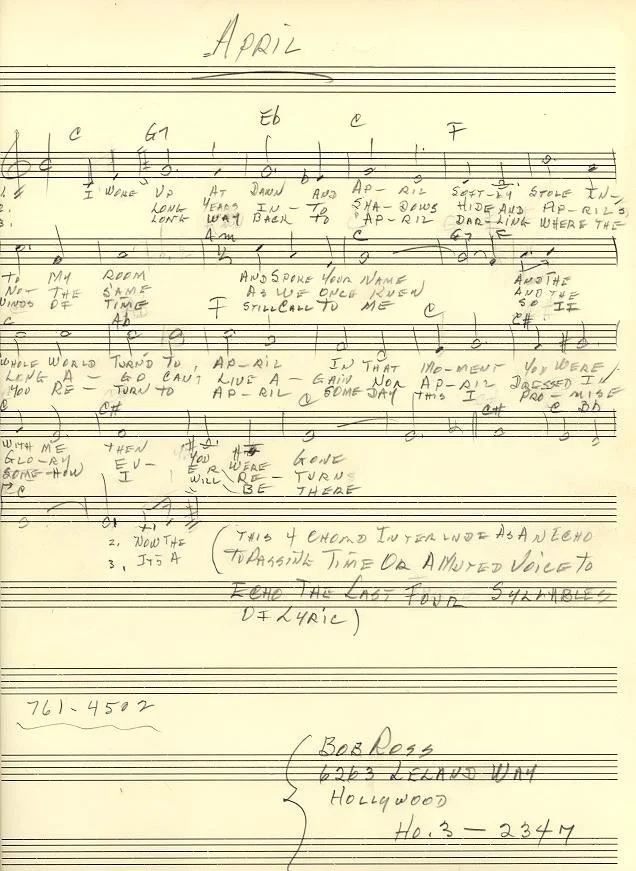 APRIL
C G7 Eb C F
1. I WOKE UP AT DAWN AND AP-RIL SOFT-LY STOLE IN-
2. LONG YEARS IN-TO SHA-DOWS HIDE AND AP-RIL'S
3. LONG WAY BACK TO AP-RIL DAR-LING WHERE THE
Am C G7 F
TO MY ROOM AND SPOKE YOUR NAME AND THE
NOT THE SAME AS WE ONCE KNEW AND THE
WINDS OF TIME STILL CALL TO ME SO IF
C Ab F C C#
WHOLE WORLD TURN'D TO AP-RIL IN THAT MO-MENT YOU WERE
LONG A-GO CAN'T LIVE A-GAIN NOR AP-RIL DRESSED IN
YOU RE-TURN TO AP-RIL SOME DAY THIS I PRO-MISE
C C# C C# C Bb
WITH ME THEN YOU WERE GONE
GLO-RY EV-ER RE-TURN
SOME-HOW I WILL BE THERE
C
2. NOW THE
3. IT'S A
(THIS 4 CHORD INTERLUDE AS AN ECHO
TO PASSING TIME OR A MUTED VOICE TO
ECHO THE LAST FOUR SYLLABLES
OF LYRIC)
761-4502
BOB ROSS
6263 LELAND WAY
HOLLYWOOD
HO. 3-2347